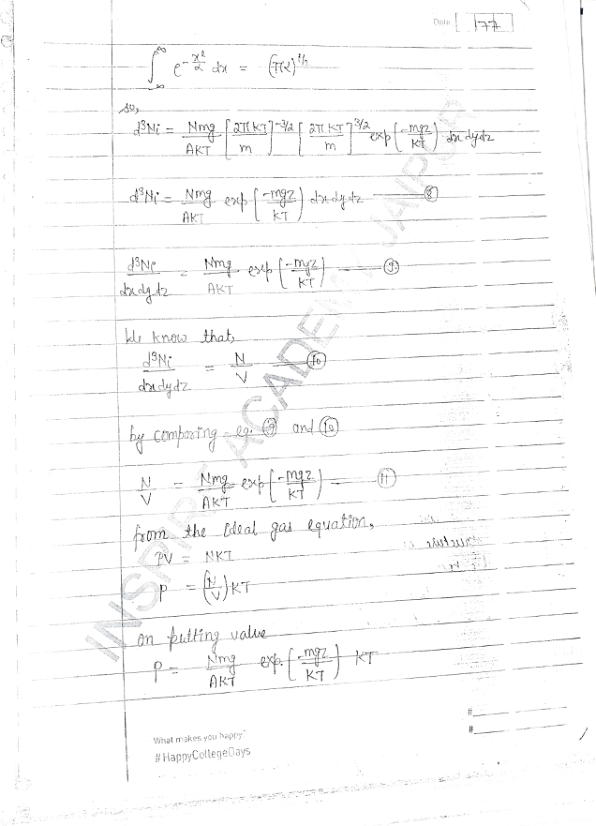 Date 177
∫_{-∞}^{∞} e^{-x²/2} dx = (π2)^{1/2}
so,
d³Ni = Nmg/AKT [2πKT/m]^{-3/2} [2πKT/m]^{3/2} exp(-mgz/KT) dxdydz
d³Ni = Nmg/AKT exp(-mgz/KT) dxdydz — ⑧
d³Ni/dxdydz = Nmg/AKT exp(-mgz/KT) — ⑨
We know that,
d³Ni/dxdydz = N/V — ⑩
by comparing eq. ⑨ and ⑩
N/V = Nmg/AKT exp(-mgz/KT) — ⑪
from the ideal gas equation,
PV = NKT
P = (N/V)KT
on putting value
P = Nmg/AKT exp.(-mgz/KT) KT
What makes you happy?
#HappyCollegeDays
#
#
INSPIRE ACADEMY JAIPUR